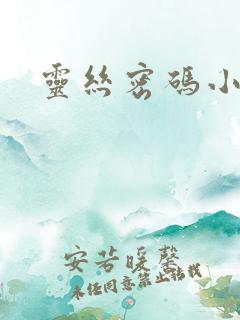 靈絲密碼小
安若暖馨
未經同意禁止估我